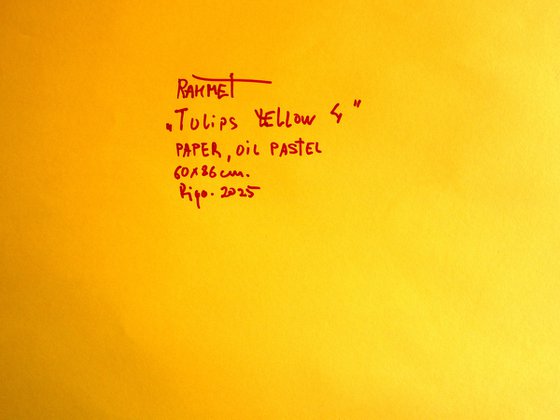 RAHMET
„Tulips YELLOW 4"
PAPER, OIL PASTEL
60x86 cm.
Riga. 2025